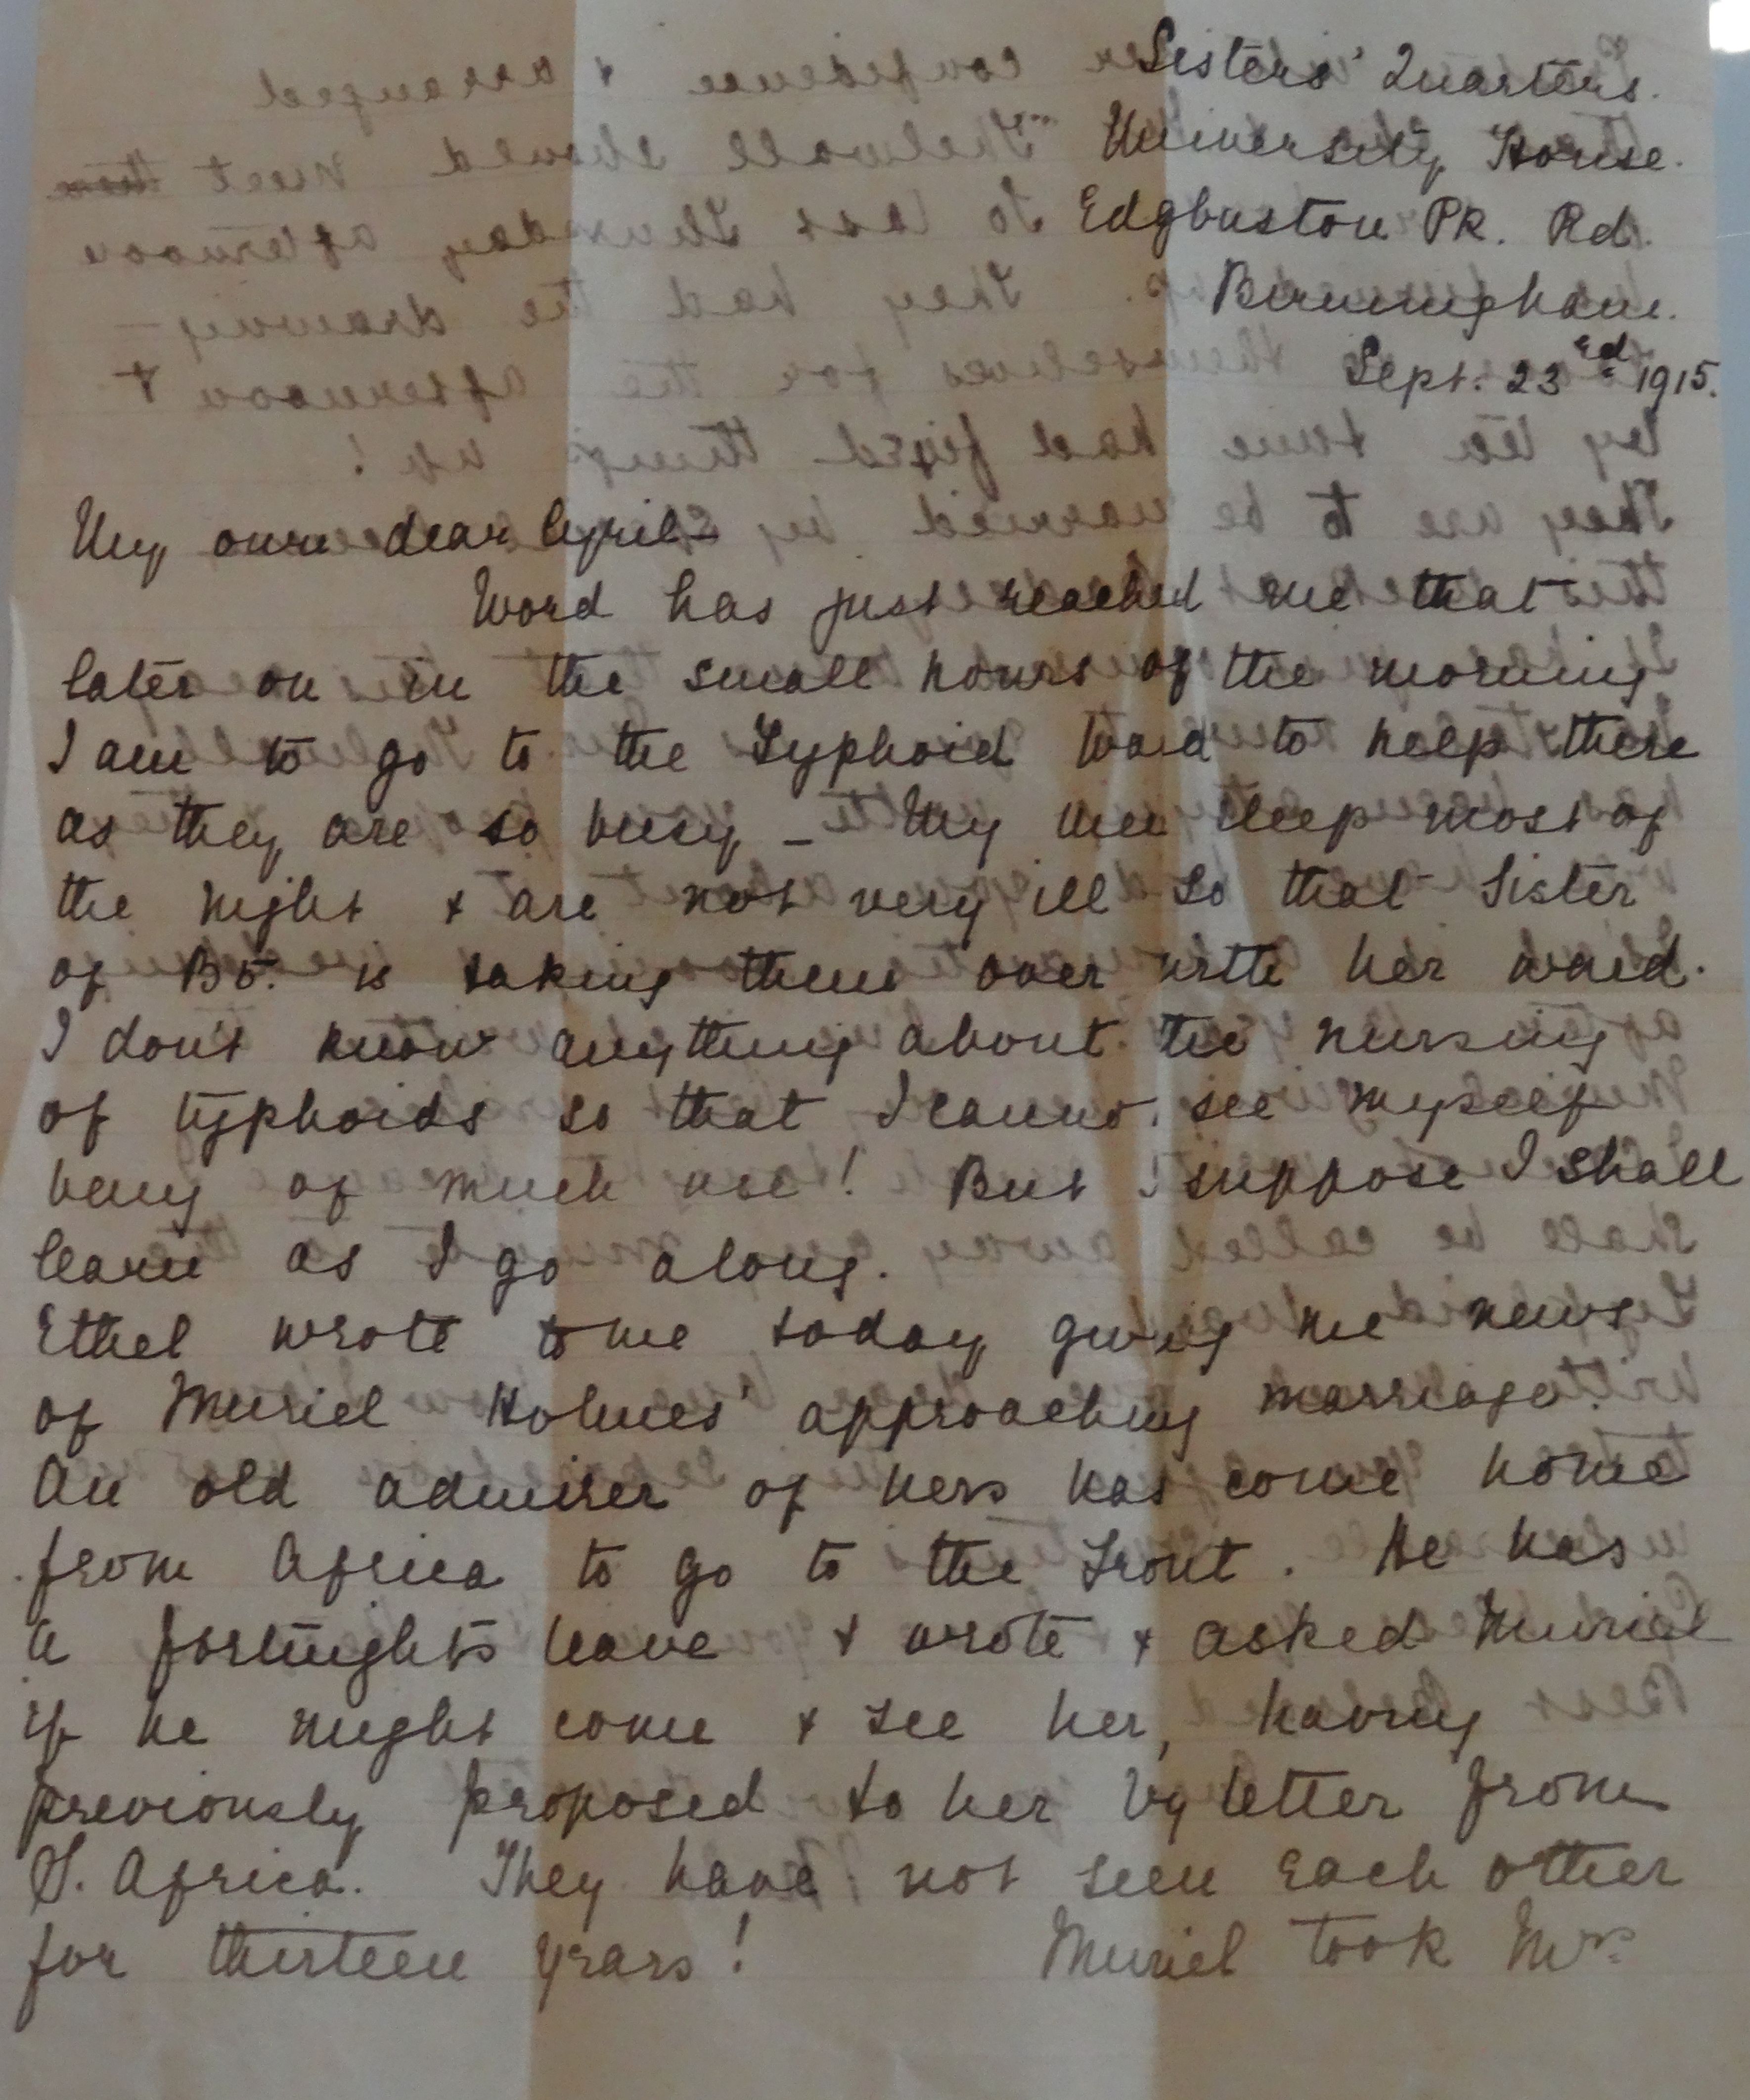 Sisters' Quarters.
University House.
Edgbaston Pk. Rd.
Birmingham.
Sept. 23ed 1915.
My own dear Cyril-
Word has just reached me that
later on in the small hours of the morning
I am to go to the Typhoid Ward to help there
as they are so busy - My men sleep most of
the night & are not very ill so that Sister
of B5. is taking them over with her ward.
I don't know anything about the nursing
of typhoids so that I cannot see myself
being of much use! But I suppose I shall
learn as I go along.
Ethel wrote to me today giving me news
of Muriel Holmes' approaching marriage.
An old admirer of hers has come home
from Africa to go to the Front. He has
a fortnights leave & wrote & asked Muriel
if he might come & see her, having
previously proposed to her by letter from
S. Africa. They have not seen each other
for thirteen years! Muriel took Mrs